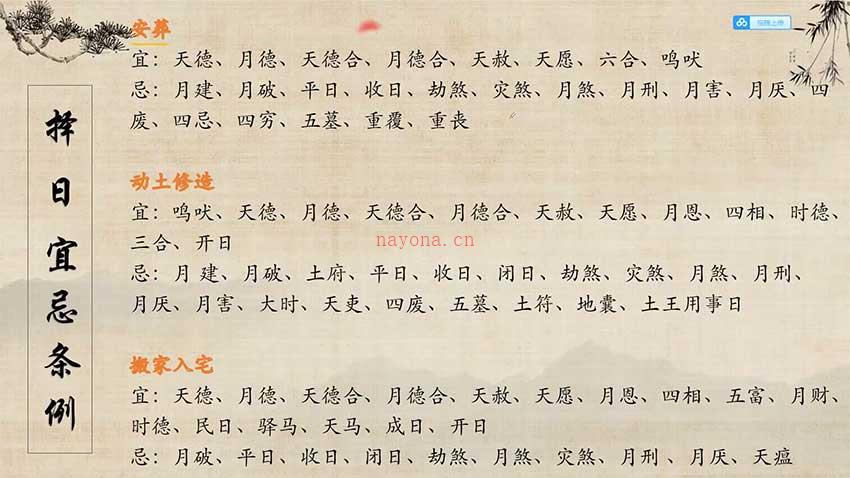 择日宜忌条例
安葬
宜：天德、月德、天德合、月德合、天赦、天愿、六合、鸣吠
忌：月建、月破、平日、收日、劫煞、灾煞、月煞、月刑、月害、月厌、四
废、四忌、四穷、五墓、重覆、重丧
动土修造
宜：鸣吠、天德、月德、天德合、月德合、天赦、天愿、月恩、四相、时德、
三合、开日
nayona.cn
忌：月建、月破、土府、平日、收日、闭日、劫煞、灾煞、月煞、月刑、
月厌、月害、大时、天吏、四废、五墓、土符、地囊、土王用事日
搬家入宅
宜：天德、月德、天德合、月德合、天赦、天愿、月恩、四相、五富、月财、
时德、民日、驿马、天马、成日、开日
忌：月破、平日、收日、闭日、劫煞、月煞、灾煞、月刑、月厌、天瘟